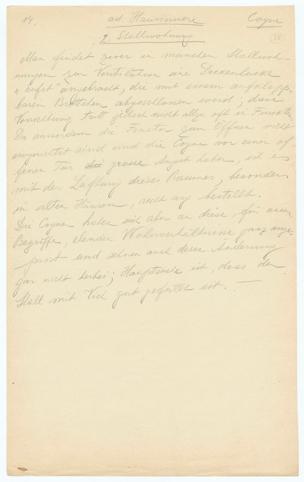 14. ad Hausinnere Cogne
2. Stallwohnung
Man findet zwar in manchen Stallwoh-
nungen zur Ventilation ein Deckenloch
angebracht, die mit einem
baren Brettchen abgeschlossen wird; diese
Vorrichtung tritt jedoch nicht allzu oft in Funktion.
Da ausserdem die Fenster zum Öffnen nicht
eingerichtet sind und die Cogner vor einer of-
fenen Tür die grosse Angst haben, ist es
mit der Lüftung dieser Räume, besonders
in alten Häusern, arg bestellt.
Die Cogner haben sich aber an diese, für unsere
Begriffe, elenden Wohnverhältnisse ganz ange-
passt und sehnen auch deren Änderung
gar nicht herbei; Hauptsache ist, dass der
Stall mit Vieh gut gefüllt ist. —